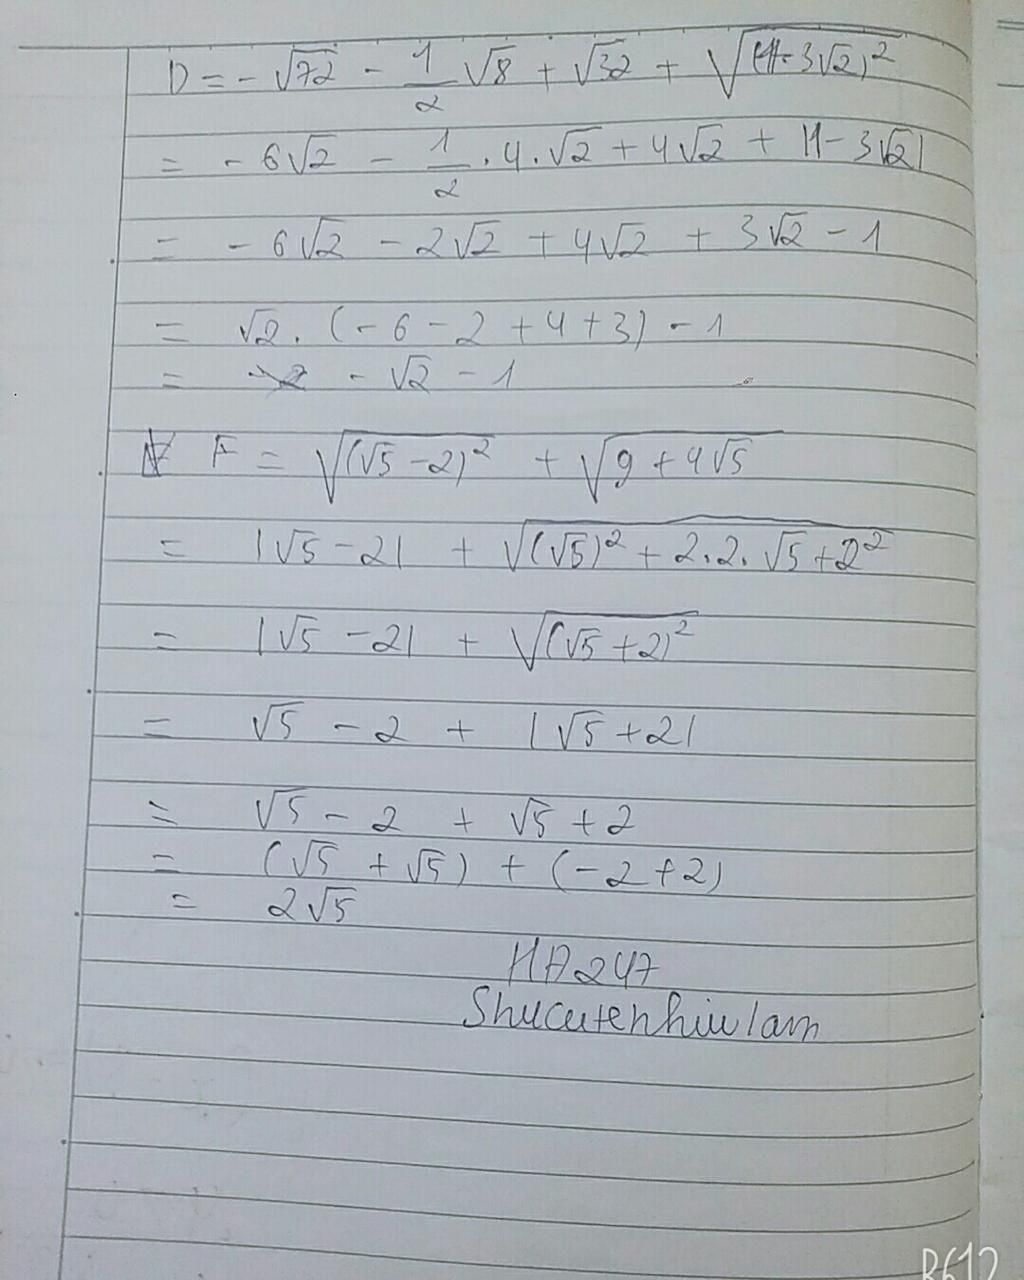 D = - √72 - 1/2 √8 + √32 + √(1-3√2)²
= - 6√2 - 1/2 . 4 . √2 + 4√2 + |1 - 3√2|
= - 6√2 - 2√2 + 4√2 + 3√2 - 1
= √2 . (- 6 - 2 + 4 + 3) - 1
= - √2 - 1
F = √(√5 - 2)² + √9 + 4√5
= |√5 - 2| + √(√5)² + 2.2.√5 + 2²
= |√5 - 2| + √(√5 + 2)²
= √5 - 2 + |√5 + 2|
= √5 - 2 + √5 + 2
= (√5 + √5) + (-2 + 2)
= 2√5
HA247
Shucutenhiulam
B612